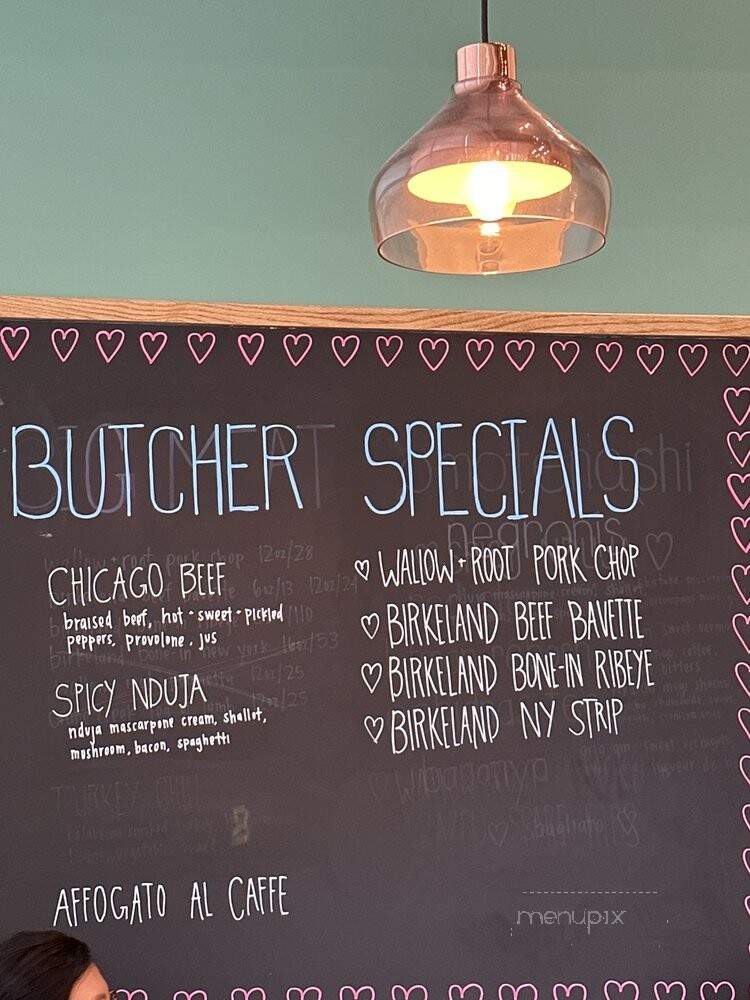 BUTCHER SPECIALS
CHICAGO BEEF
braised beef, hot + sweet + pickled
peppers, provolone, jus
SPICY NDUJA
nduja mascarpone cream, shallot,
mushroom, bacon, spaghetti
AFFOGATO AL CAFFE
WALLOW + ROOT PORK CHOP
BIRKELAND BEEF BAVETTE
BIRKELAND BONE-IN RIBEYE
BIRKELAND NY STRIP
menupix